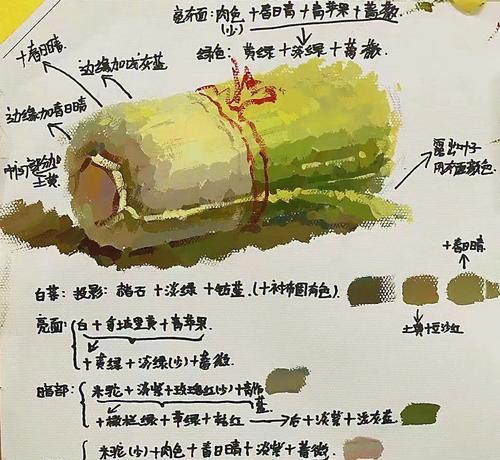 亮布面:肉色+春日青+青苹果+蔷薇.
(少)
绿色:黄绿+淡绿+蔷薇.
+春日青
边缘加浅灰蓝
边缘加春日晴
中间部分加
土黄
露出叶子
用布面颜色.
+春日晴
白菜:投影:赭石+淡绿+钴蓝.(+衬布固有色).
土黄+豆沙红
亮面:白+那坡里黄+青苹果.
+黄绿+淡绿(少)+蔷薇.
暗部:朱驼+淡紫+玫瑰红(少)+青竹
蓝.
+橄榄绿+草绿+桔红→右+淡紫+浅灰蓝.
朱驼(少)+肉色+春日晴+淡紫+蔷薇.